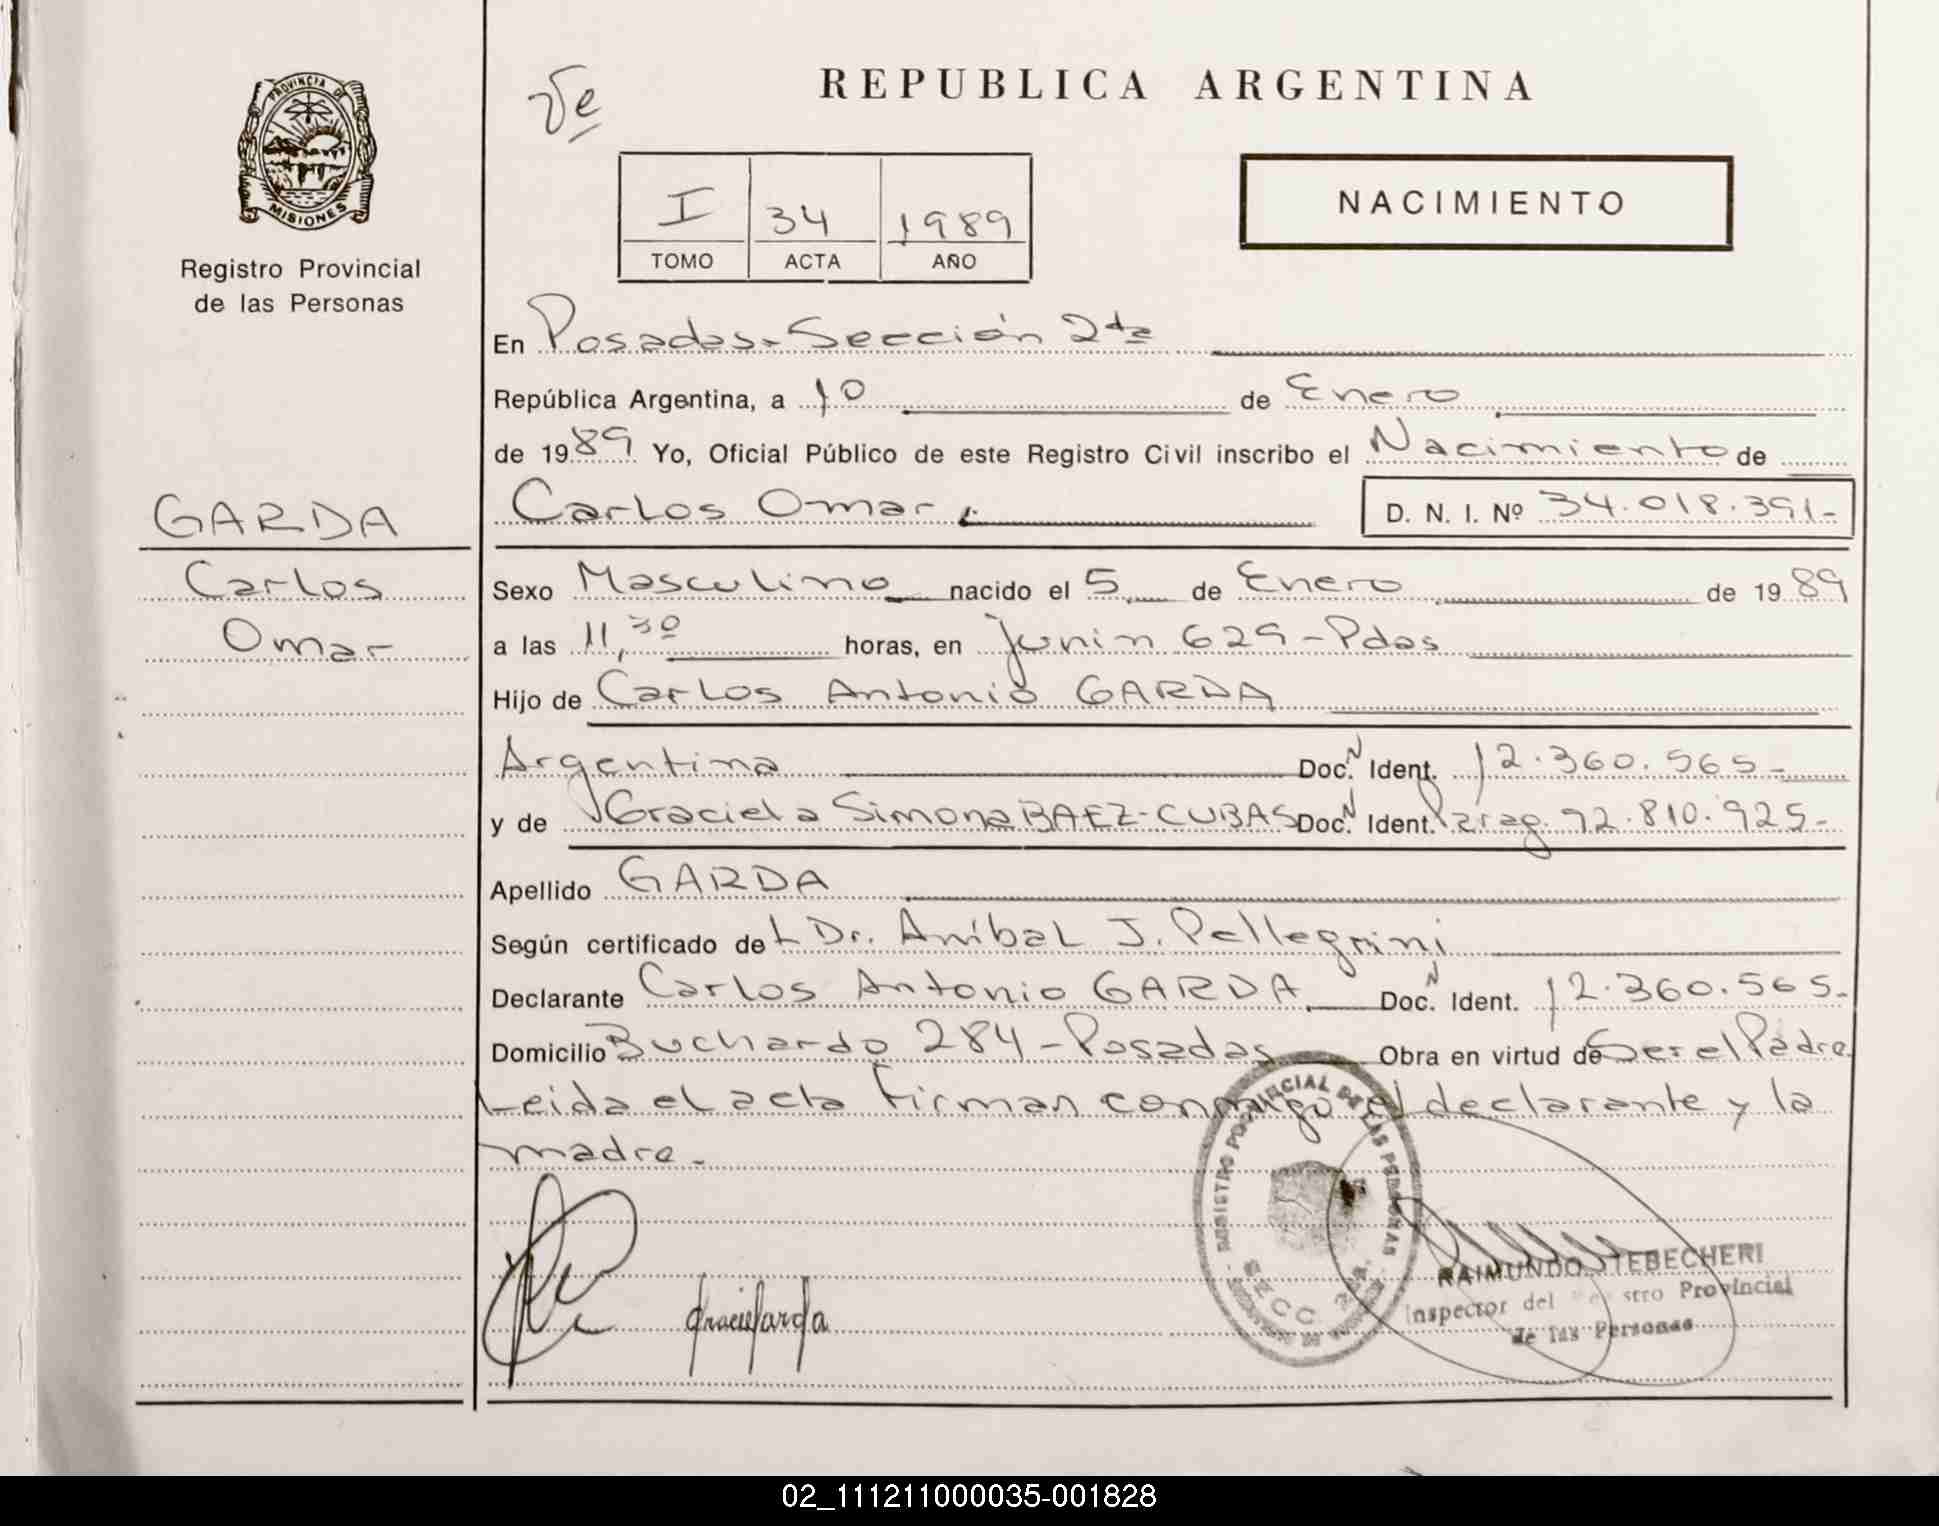 PROVINCIA DE
MISIONES
Registro Provincial
de las Personas
GARDA
Carlos
Omar
REPUBLICA ARGENTINA
I 34 1989
TOMO ACTA AÑO
NACIMIENTO
En Posadas-Sección 2da
República Argentina, a 10 de Enero
de 1989 Yo, Oficial Público de este Registro Civil inscribo el Nacimiento de
Carlos Omar. D. N. I. Nº 34.018.391-
Sexo Masculino nacido el 5 de Enero de 1989
a las 11,30 horas, en Junin 629-Pdas
Hijo de Carlos Antonio GARDA
Argentina Doc. N Ident. 12.360.565-
y de Graciela Simona BAEZ-CUBAS Doc. N Ident. Parag. 92.810.925-
Apellido GARDA
Según certificado del Dr. Aníbal J. Pellegrini
Declarante Carlos Antonio GARDA Doc. N Ident. 12.360.565-
Domicilio Buchardo 284-Posadas Obra en virtud de Ser el Padre
Leida el acta firman conmigo el declarante y la
madre-
SECC 2da.
RAIMUNDO STEBECHERI
Inspector del Registro Provincial
de las Personas
02_111211000035-001828